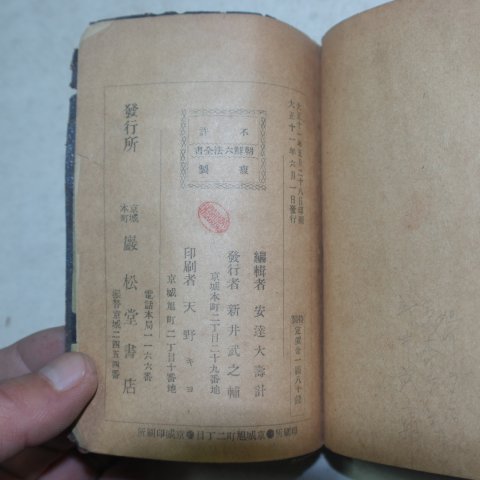 大正十一年五月二十八日印刷
大正十一年六月一日發行
不許
朝鮮六法全書
複製
定價金一圓八十錢
編輯者 安達大壽計
京城本町二丁目二十九番地
發行者 新井武之輔
京城旭町二丁目十番地
印刷者 天野キヨ
發行所
京城
本町
巖松堂書店
電話本局一一六六番
振替京城二四五四番
印刷所 京城旭町二丁目 京城印刷所